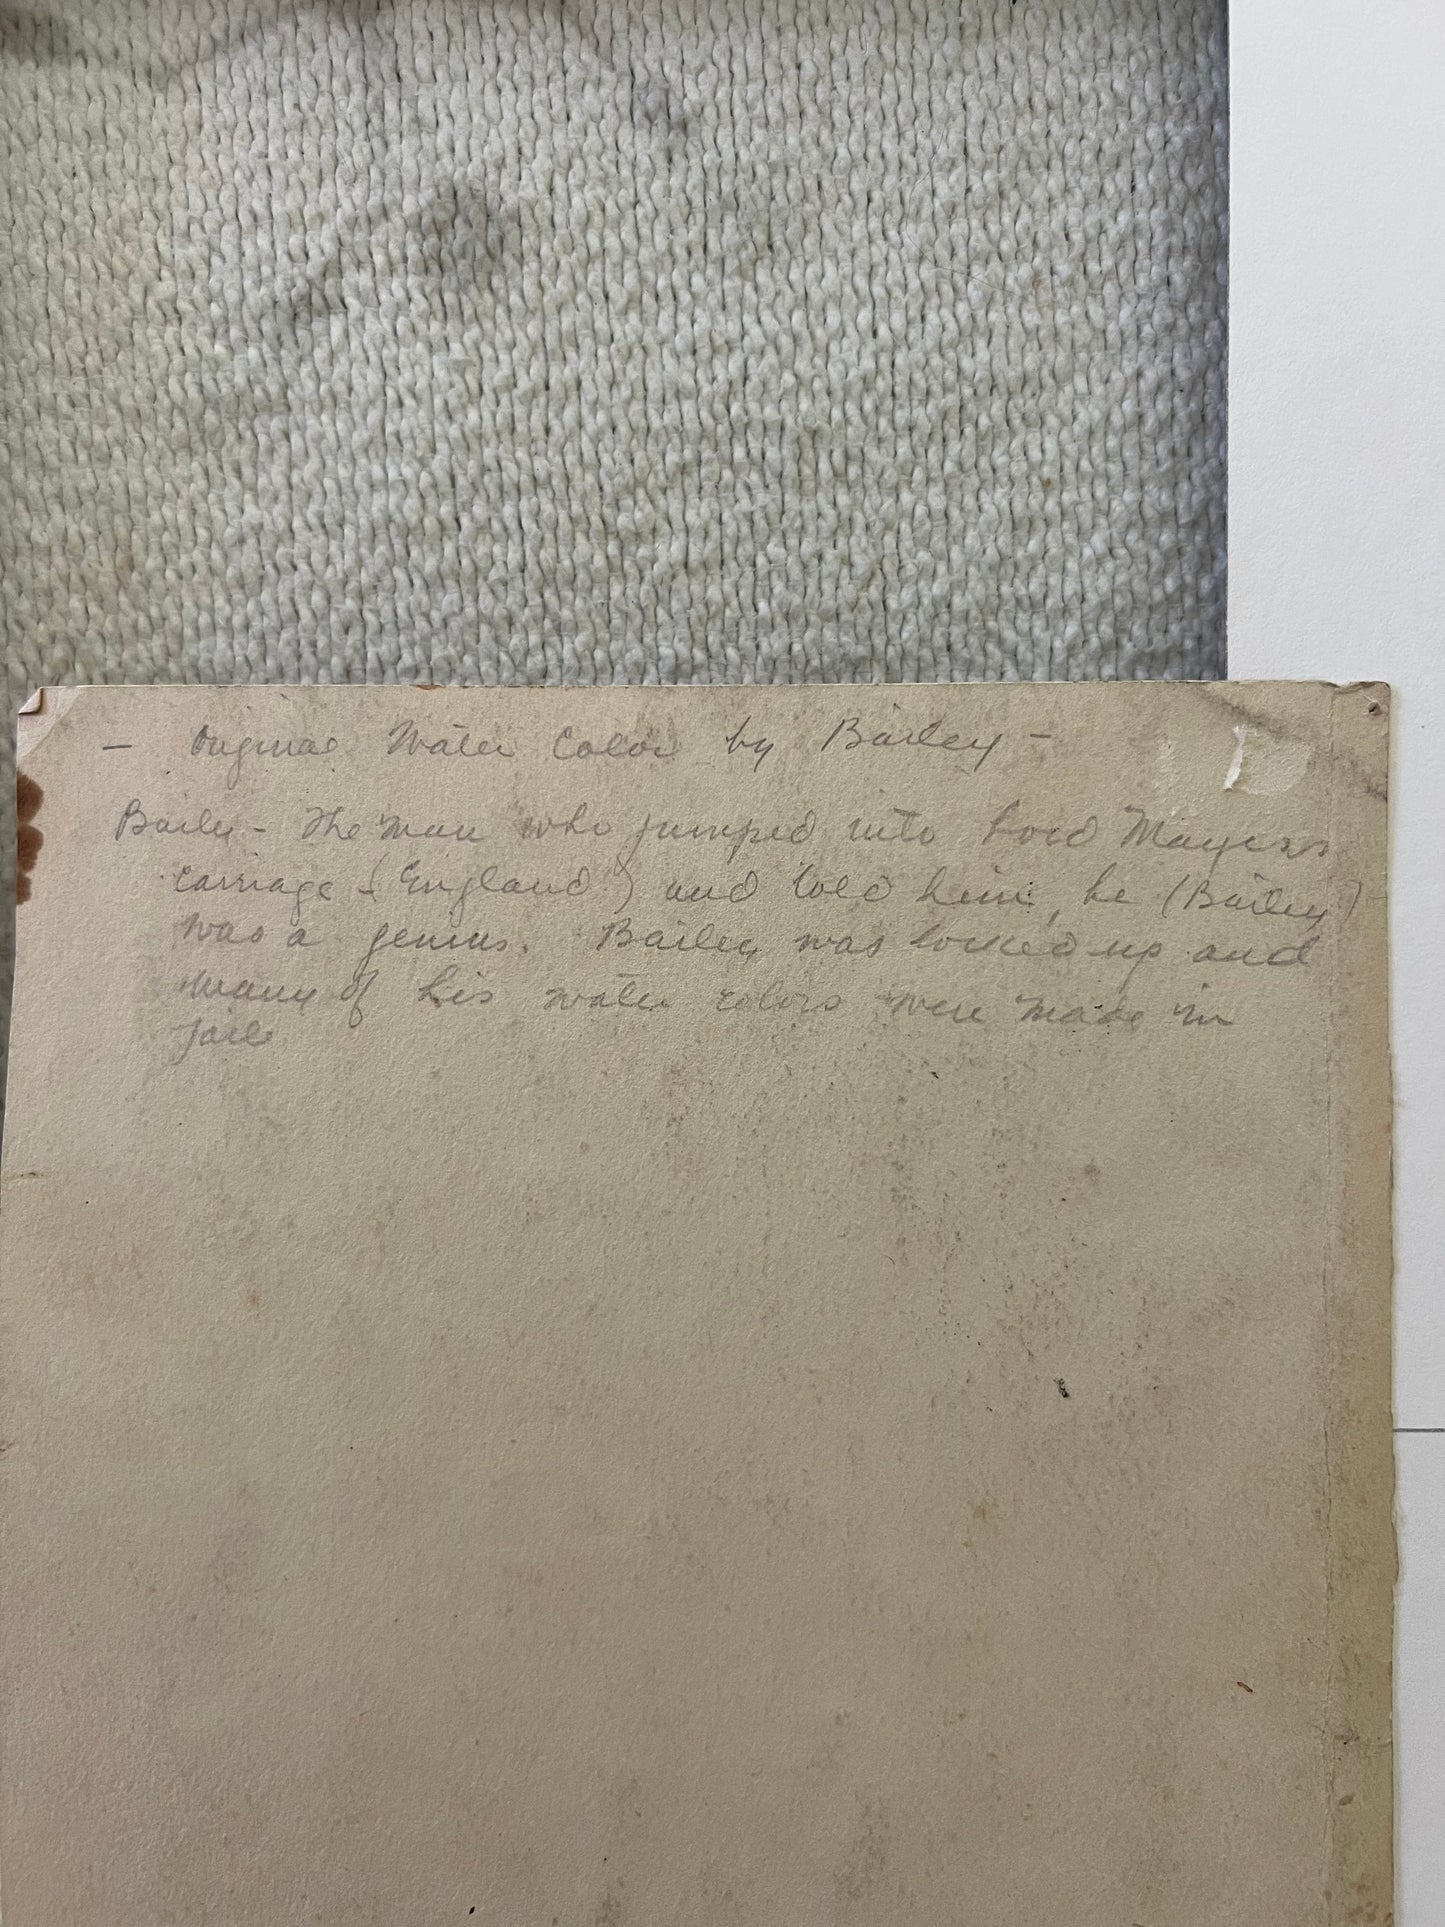 - Original Water Color by Bailey -
Bailey - The man who jumped into Lord Mayors
carriage (England) and told him, he (Bailey)
was a genius. Bailey was locked up and
many of his water colors were made in
jail